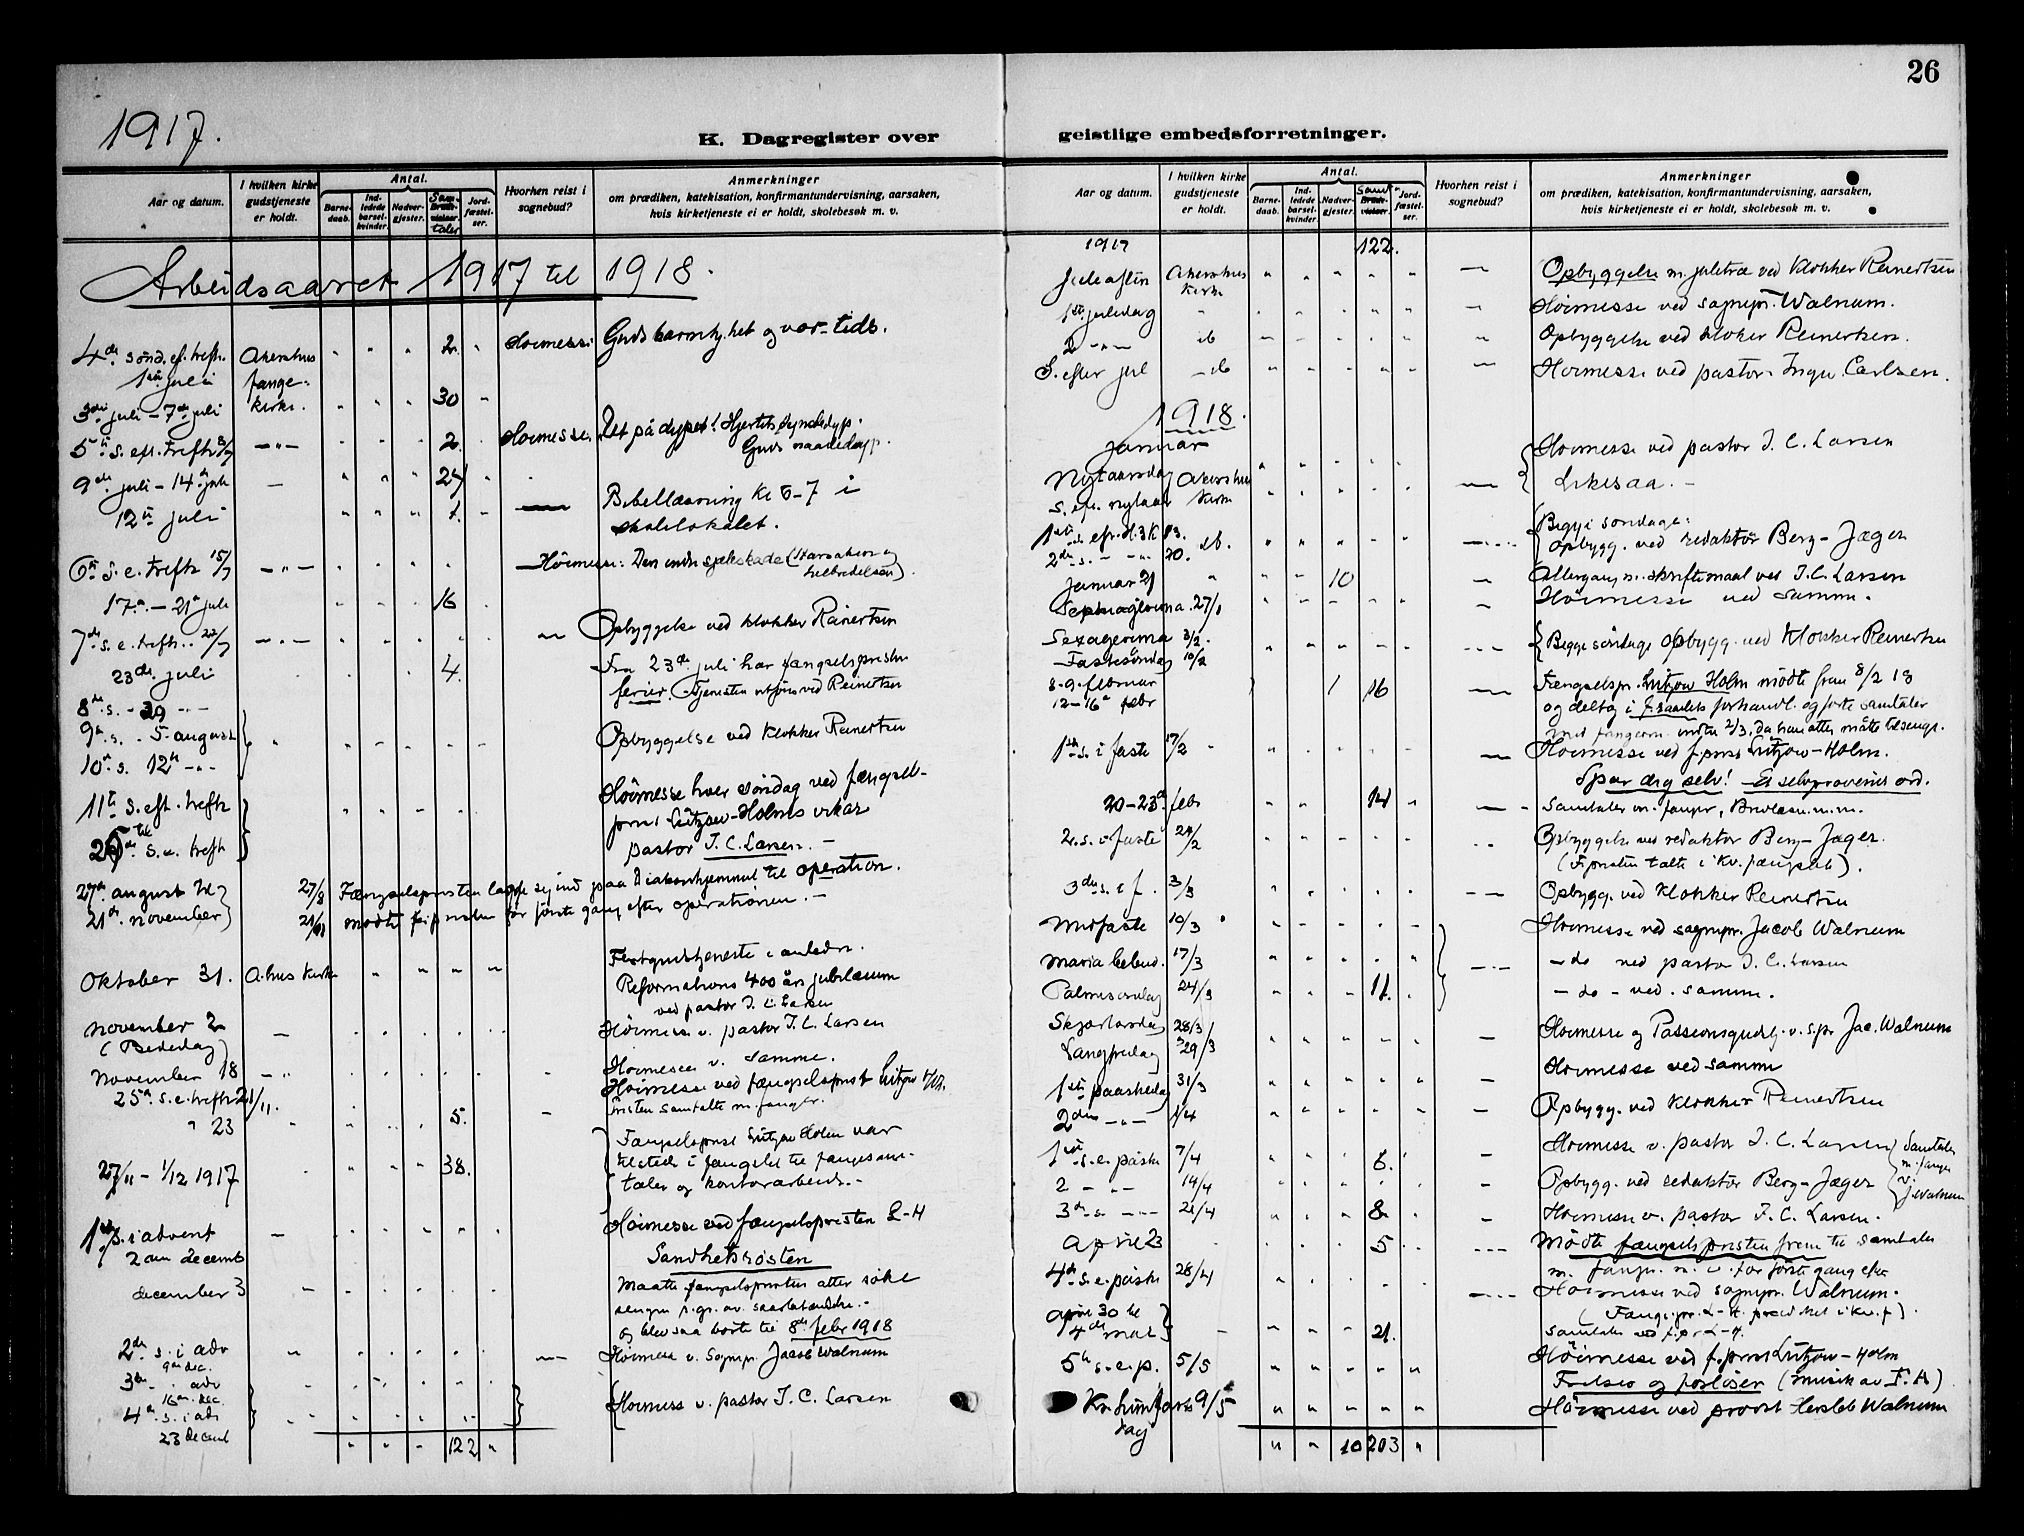 26
1917.
K. Dagregister over
geistlige embedsforretninger.
Aar og datum.
I hvilken kirke gudstjeneste er holdt.
Antal.
Barne-daab.
Ind-ledede barsel-kvinder.
Nadver-gjester.
Sam-taler
Jord-fæstel-ser.
Hvorhen reist i sognebud?
Anmerkninger
om prædiken, katekisation, konfirmantundervisning, aarsaken,
hvis kirketjeneste ei er holdt, skolebesøk m. v.
Arbeidsaaret 1917 til 1918.
4de sönd. ef. trefh. Akershus 2. Höimesse Guds barmhj.het og vor tids.
1ste juli fange-
3die juli – 7de juli kirke. 30
5te s. eft. trefh. 8/7 2. Höimesse Guds naadedyp.
9de juli – 14de juli 24
12te juli Bibellæsning Kl 6–7 i
skolelokalet.
6te s. e. trefh 15/7 Höimesse: Den indre sjæleskade (
helbredelsen).
17de – 21de juli 16
7de s. e. trefh. 22/7 Opbyggelse ved klokker Reinertsen
23de juli 4. Fra 23de juli har fængselspresten
ferier. Tjenesten utföres ved Reinertsen
8de s. - 29
9de s. 5. august Opbyggelse ved klokker Reinertsen
10de s. 12te
11te s. eft. trefh Höimesse hver söndag ved fængsels-
til prest Lützow-Holms vikar
25de s. e. trefh pastor J. C. Larsen. –
27de august til 27/8 Fængselspresten lagde sig ind paa Diakonhjemmet til operation.
21de november 21/11 mødte f.presten for første gang efter operationen. –
Oktober 31. A.hus kirke Festgudstjeneste i anledn.
Reformations 400 års jubilæum
ved pastor J. C. Larsen
November 2 Höimesse v. pastor J. C. Larsen
(Bededag)
November 18 Höimesse v. samme.
25de s. e. trefh 21/11. Höimesse ved fængselsprest Lützow Holm.
" 23 5. Presten samtalte m. fanger.
27/11 – 1/12 1917 38. Fængselsprest Lützow Holm var
tilstede i fængslet til fangesam-
taler og kontorarbeide. –
1ste s. i advent Höimesse ved fængselspresten L–H
2den decemb Sandhetsrösten
december 3 Maatte fængselspresten atter søke
sengen p. gr. av
og blev saa borte til 8de febr 1918
2den s. i adv Höimesse v. Sognepr. Jacob Walnum
9de dec.
3die " i adv
16de dec. Höimesse v. pastor J. C. Larsen
4de s. i adv
23 decemb
122
Aar og datum.
I hvilken kirke gudstjeneste er holdt.
Antal.
Barne-daab.
Ind-ledede barsel-kvinder.
Nadver-gjester.
Samt
Jord-fæstel-ser.
Hvorhen reist i sognebud?
Anmerkninger
om prædiken, katekisation, konfirmantundervisning, aarsaken,
hvis kirketjeneste ei er holdt, skolebesøk m. v.
1917 122.
Juleaften Akershus kirke Opbyggelse m. juletræ ved klokker Reinertsen
1ste juledag Höimesse ved sognepr. Walnum.
2 – " – do Opbyggelse ved klokker Reinertsen.
S. efter jul – do Höimesse ved pastor Ingv. Carlsen.
1918.
Januar
Nytaarsdag Akershus Höimesse ved pastor J. C. Larsen
S. efr. nytaar kirke Likesaa. –
1ste s. efr. H. 3 K 13. do. Begge söndage:
2den s. – " – 20. opbygg. ved redaktör Berg–Jæger
Januar 21 10 Altergang m. skriftemaal ved J. C. Larsen
Septuagesima 27/1 Höimesse ved samme.
Sexagesima 3/2. Begge söndage opbygg. ved klokker Reinertsen
Fastesöndag 10/2
8–9. februar 1 16 Fængselspr. Lützow Holm mödte frem 8/2 18
12–16de febr og deltog i forhandl. og förte samtaler
med fangerne indtil 2/3, da han atter måtte tilsengs.
1ste s. i faste 17/2 Höimesse ved f.prest Lützow–Holm.
Spar dig selv!
20–23de febr 14 Samtaler m. fanger, m. m.
2. s. i faste 24/2 Opbyggelse ved redaktör Berg–Jæger.
(F.presten talte i kv. fængslet).
3die s. i f. 3/3 Opbygg. ved klokker Reinertsen
Midfaste 10/3 Höimesse ved sognepr. Jacob Walnum
Maria bebud. 17/3 – do ved pastor J. C. Larsen
Palmesöndag 24/3 11. – do – ved samme.
Skjærtorsdag 28/3 Höimesse og Passionsgudstj. v. s.pr Jac. Walnum
Langfredag 29/3
1ste paaskedag 31/3 Höimesse ved samme
2den – " – 1/4 Opbygg. ved klokker Reinertsen
1ste s. e. påske 7/4 6. Höimesse v. pastor J. C. Larsen Samtaler
2 – " – 14/4 Opbygg. ved redaktör Berg–Jæger m. fanger v. J. Walnum
3die s. – " – 21/4 8. Höimesse v. pastor J. C. Larsen.
April 23 5 Mödte fængselspresten frem til samtaler
m. fanger m. v. for første gang efter
4de s. e. påske 28/4 Höimesse ved sognepr. Walnum.
(Fængs. pr. L–H. prædiket i kv. f).
April 30 til 4de mai 21. Samtaler ved f.pr L–H.
5te s. e. p. 5/5 Höimesse ved f. prest Lützow–Holm
Frelser og forlöser (musik av F. A)
Kr. himfarts dag 9/5 Höimesse ved provst Hersleb Walnum
10 203